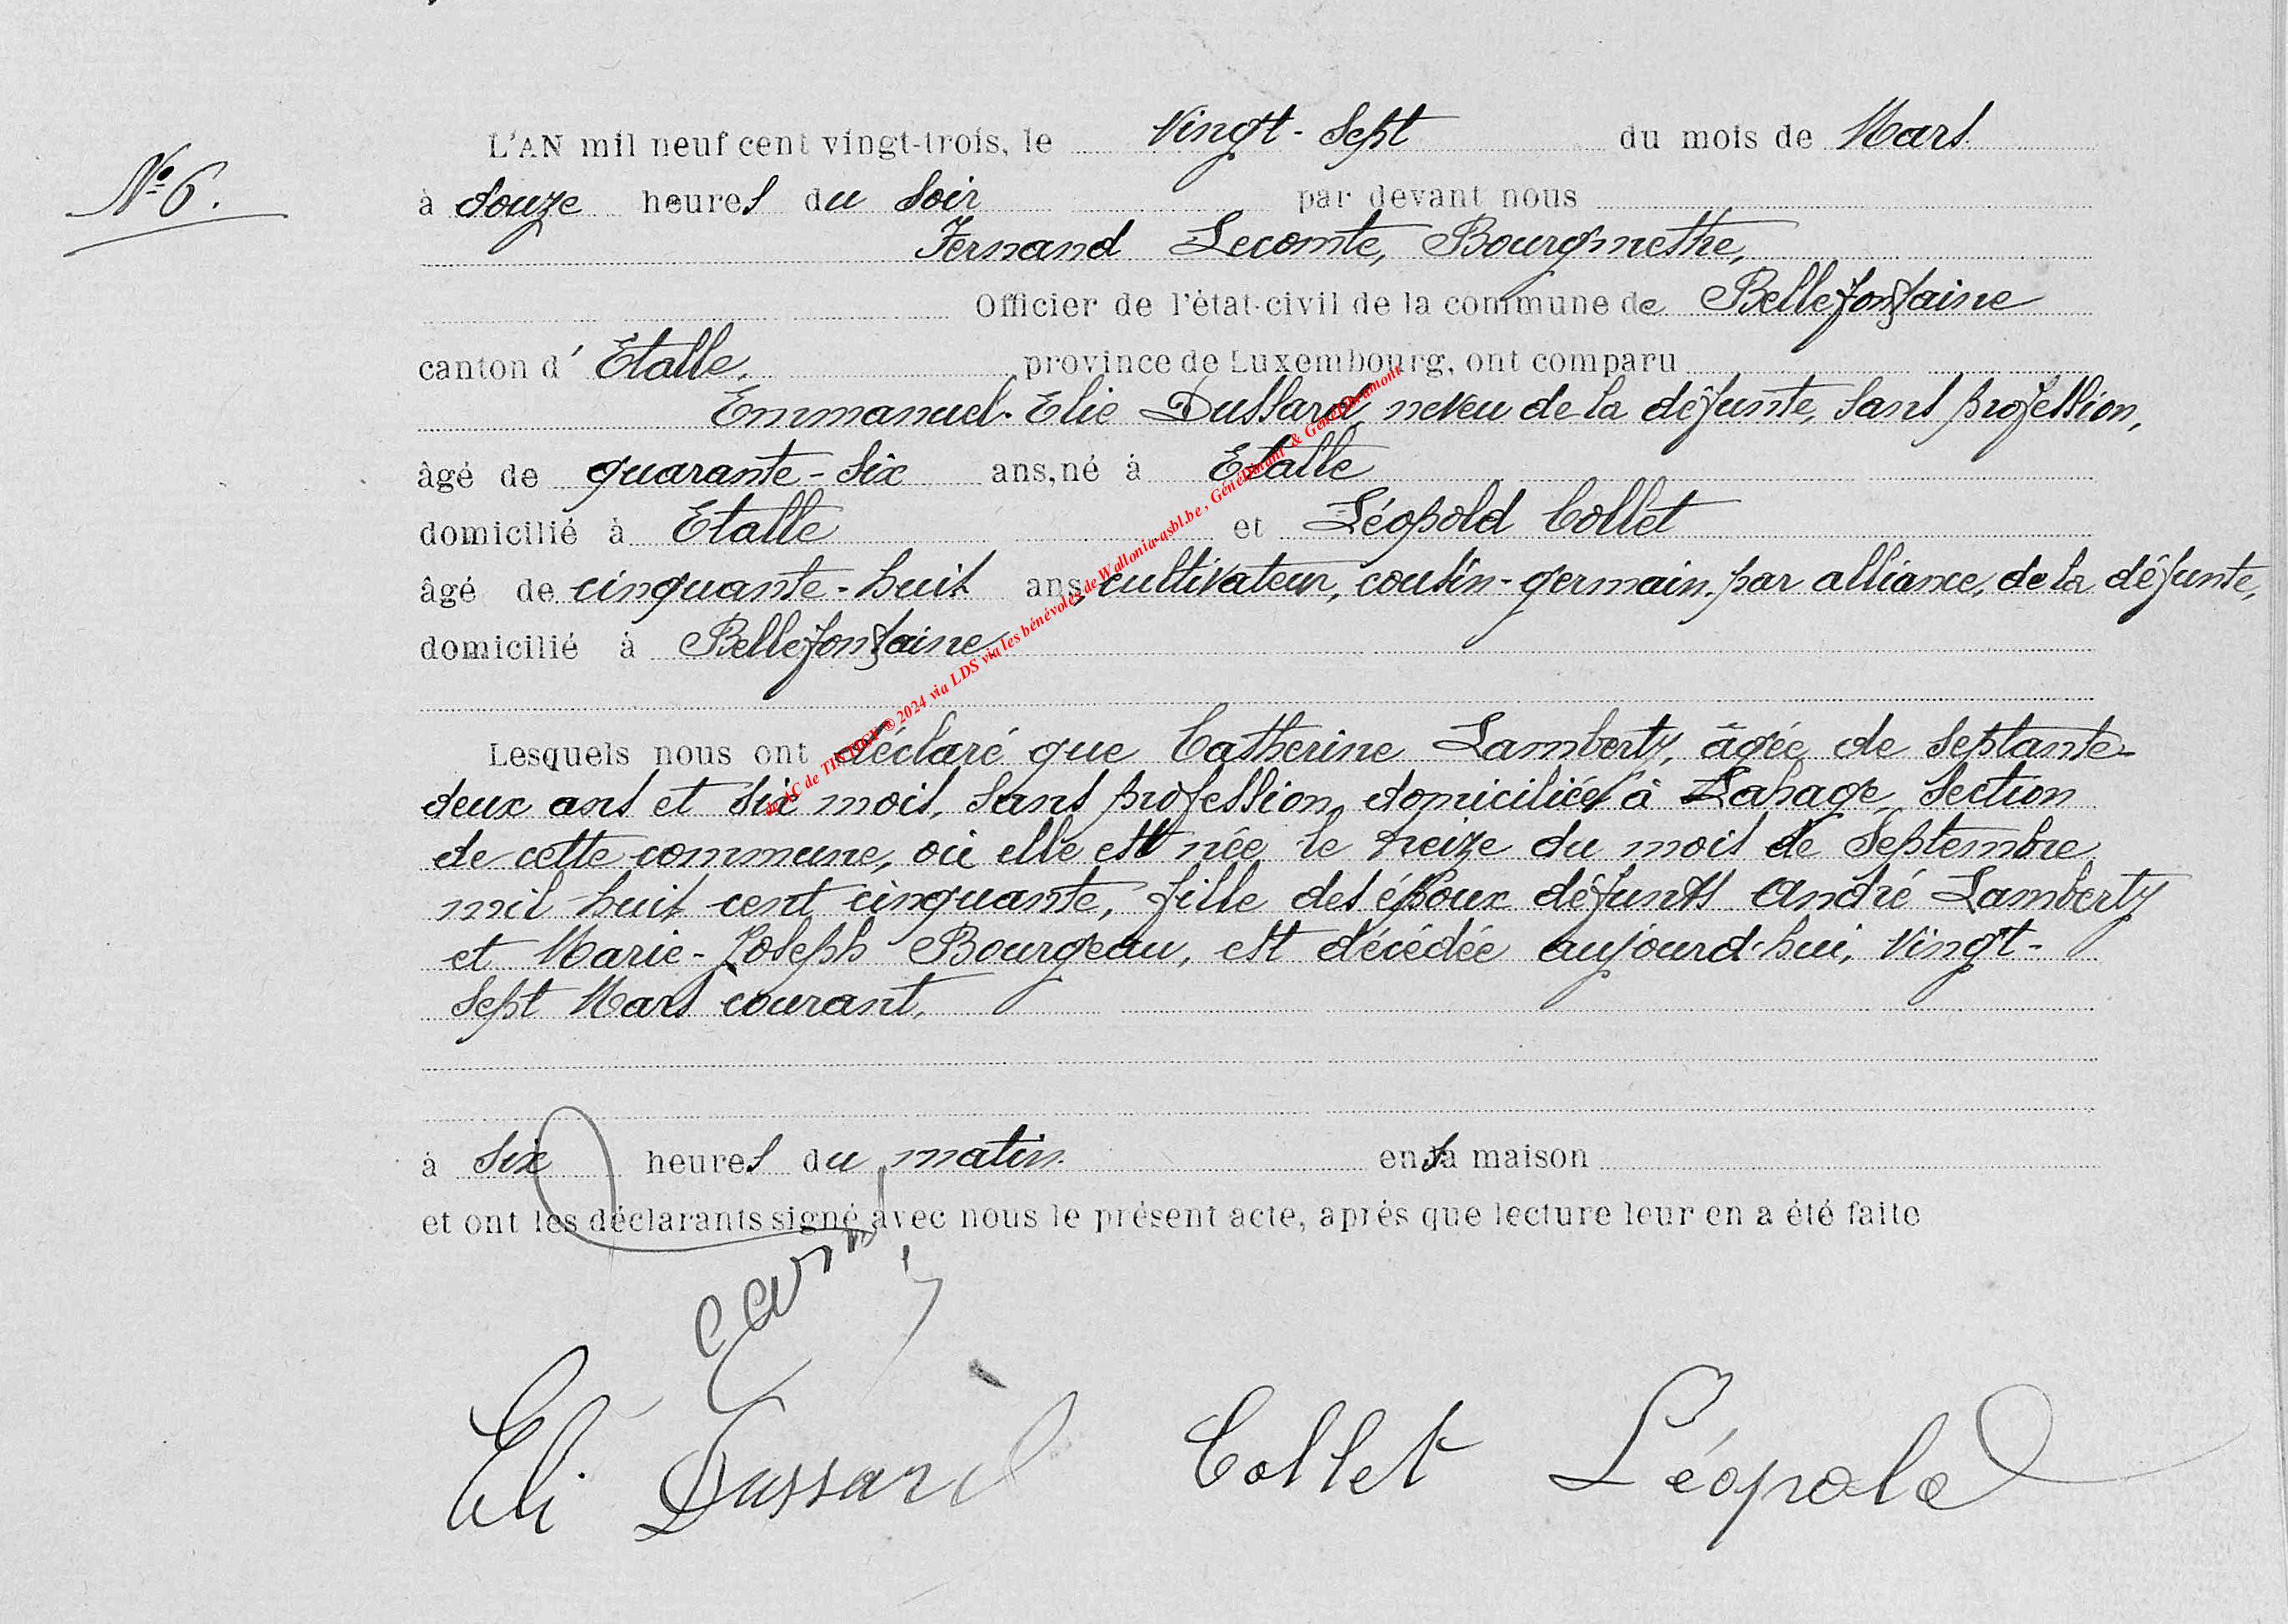 L'AN mil neuf cent vingt-trois, le Vingt-Sept du mois de Mars.
N° 6.
à douze heures du soir par devant nous
Fernand Lecomte, Bourgmestre,
Officier de l'état-civil de la commune de Bellefontaine
canton d'Etalle, province de Luxembourg, ont comparu
Emmanuel-Elie Dussard, neveu de la défunte, sans profession,
âgé de quarante-six ans, né à Etalle
domicilié à Etalle et Léopold Collet
âgé de cinquante-huit ans, cultivateur, cousin-germain, par alliance, de la défunte,
domicilié à Bellefontaine
de AC de TINTIGNY ®2024 via LDS via les bénévoles de Wallonia-asbl.be, GénéDinant & GénéLibramont
Lesquels nous ont déclaré que Catherine Lamberty, âgée de septante-
deux ans et six mois, sans profession, domiciliée à Lahage, section
de cette commune, où elle est née le treize du mois de Septembre
mil huit cent cinquante, fille des époux défunts André Lamberty
et Marie-Joseph Bourgeau, est décédée aujourd'hui, vingt-
sept Mars courant,
à six heures du matin. en sa maison
et ont les déclarants signé avec nous le présent acte, après que lecture leur en a été faite
Eli Dussard Collet Léopold